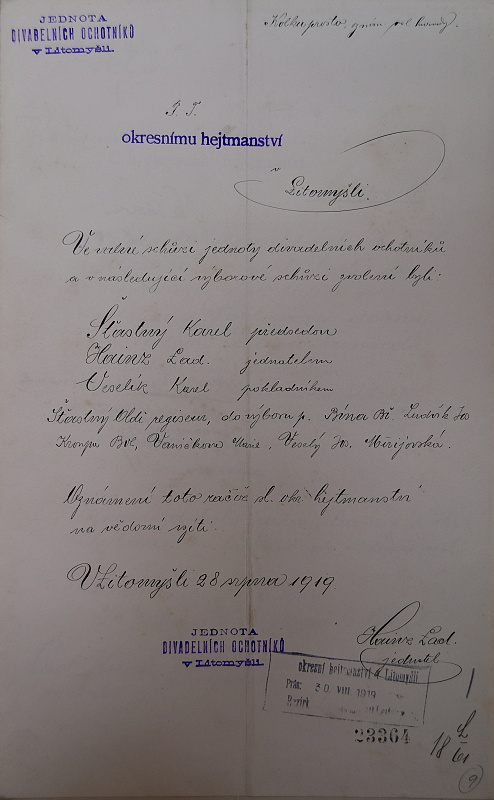 JEDNOTA
DIVADELNÍCH OCHOTNÍKŮ
v Litomyšli.
Kolku prosto
okresnímu hejtmanství
v
Litomyšli.
Ve valné schůzi jednoty divadelních ochotníků
a v následující výborové schůzi zvoleni byli:
Šťastný Karel předsedou
Hainz Lad. jednatelem
Veselík Karel pokladníkem
Šťastný Old. regisem, do výboru p. Bína Bř. Ludvík Jos
Kroupa Vaníčkova Marie, Veselý Jos.
Oznámení toto račiž sl. okr. hejtmanství
na vědomí vzíti.
V Litomyšli 28 srpna 1919
JEDNOTA
DIVADELNÍCH OCHOTNÍKŮ
v Litomyšli.
Hainz Lad.
jednatel
okresní hejtmanství v Litomyšli
30 VIII. 1919
23364
18
9